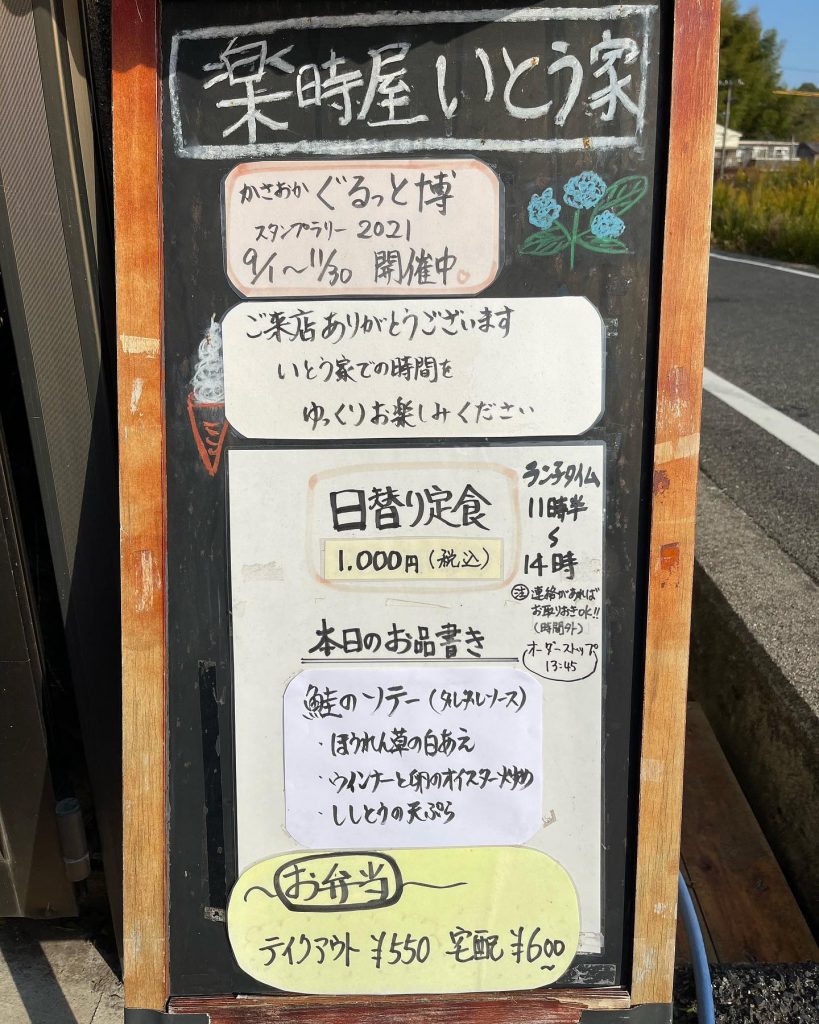 楽時屋 いとう家
かさおか ぐるっと博
スタンプラリー 2021
9/1～11/30 開催中。
ご来店ありがとうございます
いとう家での時間を
ゆっくりお楽しみください
日替り定食
1.000円(税込)
ランチタイム
11時半
～
14時
注 連絡があれば
お取りおきOK!!
(時間外)
オーダーストップ
13:45
本日のお品書き
鮭のソテー(タルタルソース)
・ほうれん草の白あえ
・ウインナーと卵のオイスター炒め
・ししとうの天ぷら
お弁当
テイクアウト ¥550 宅配 ¥600～